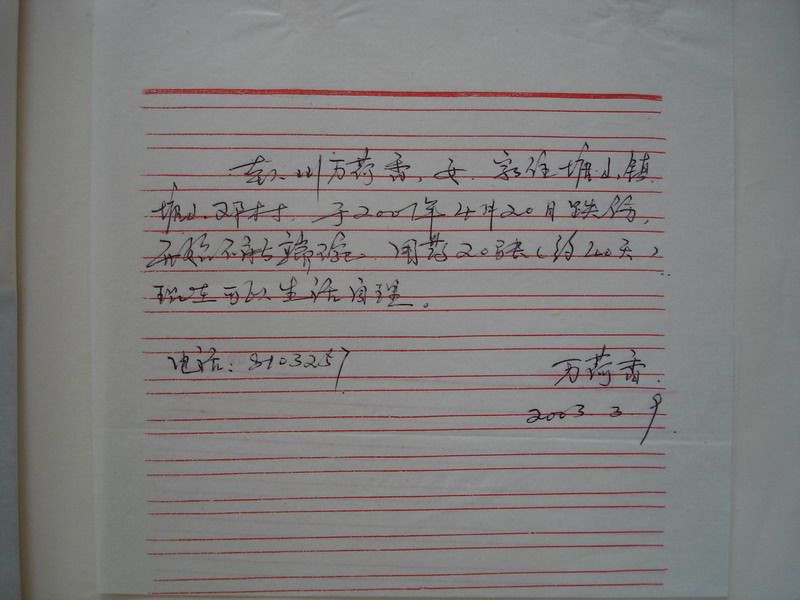 万荷香，女，家住塘山镇
塘山邓村，于2001年4月20日跌伤，
不能，用药20张（约40天）
现在可以生活自理。
电话：8103257
万荷香.
2003.3.9.